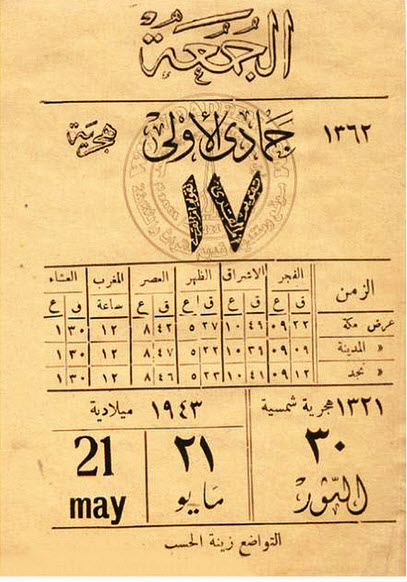 الجمعة
١٣٦٢ جمادى الأولى هجرية
١٧
الزمن الفجر الاشراق الظهر العصر المغرب العشاء
ق ع ق ع ق ع ق ع ساعة ق ع
عرض مكة ٢٢ ٠٩ ٤٦ ١٠ ٢٧ ٥ ٤٢ ٨ ١٢ ٣٠ ١
« المدينة ٠٩ ٠٩ ٣٩ ١٠ ٢٢ ٥ ٤٧ ٨ ١٢ ٣٠ ١
« نجد ١٢ ٠٩ ٤١ ١٠ ٢٣ ٥ ٤٦ ٨ ١٢ ٣٠ ١
١٣٢١ هجرية شمسية ١٩٤٣ ميلادية
٣٠ ٢١ 21
الثور مايو may
التواضع زينة الحسب